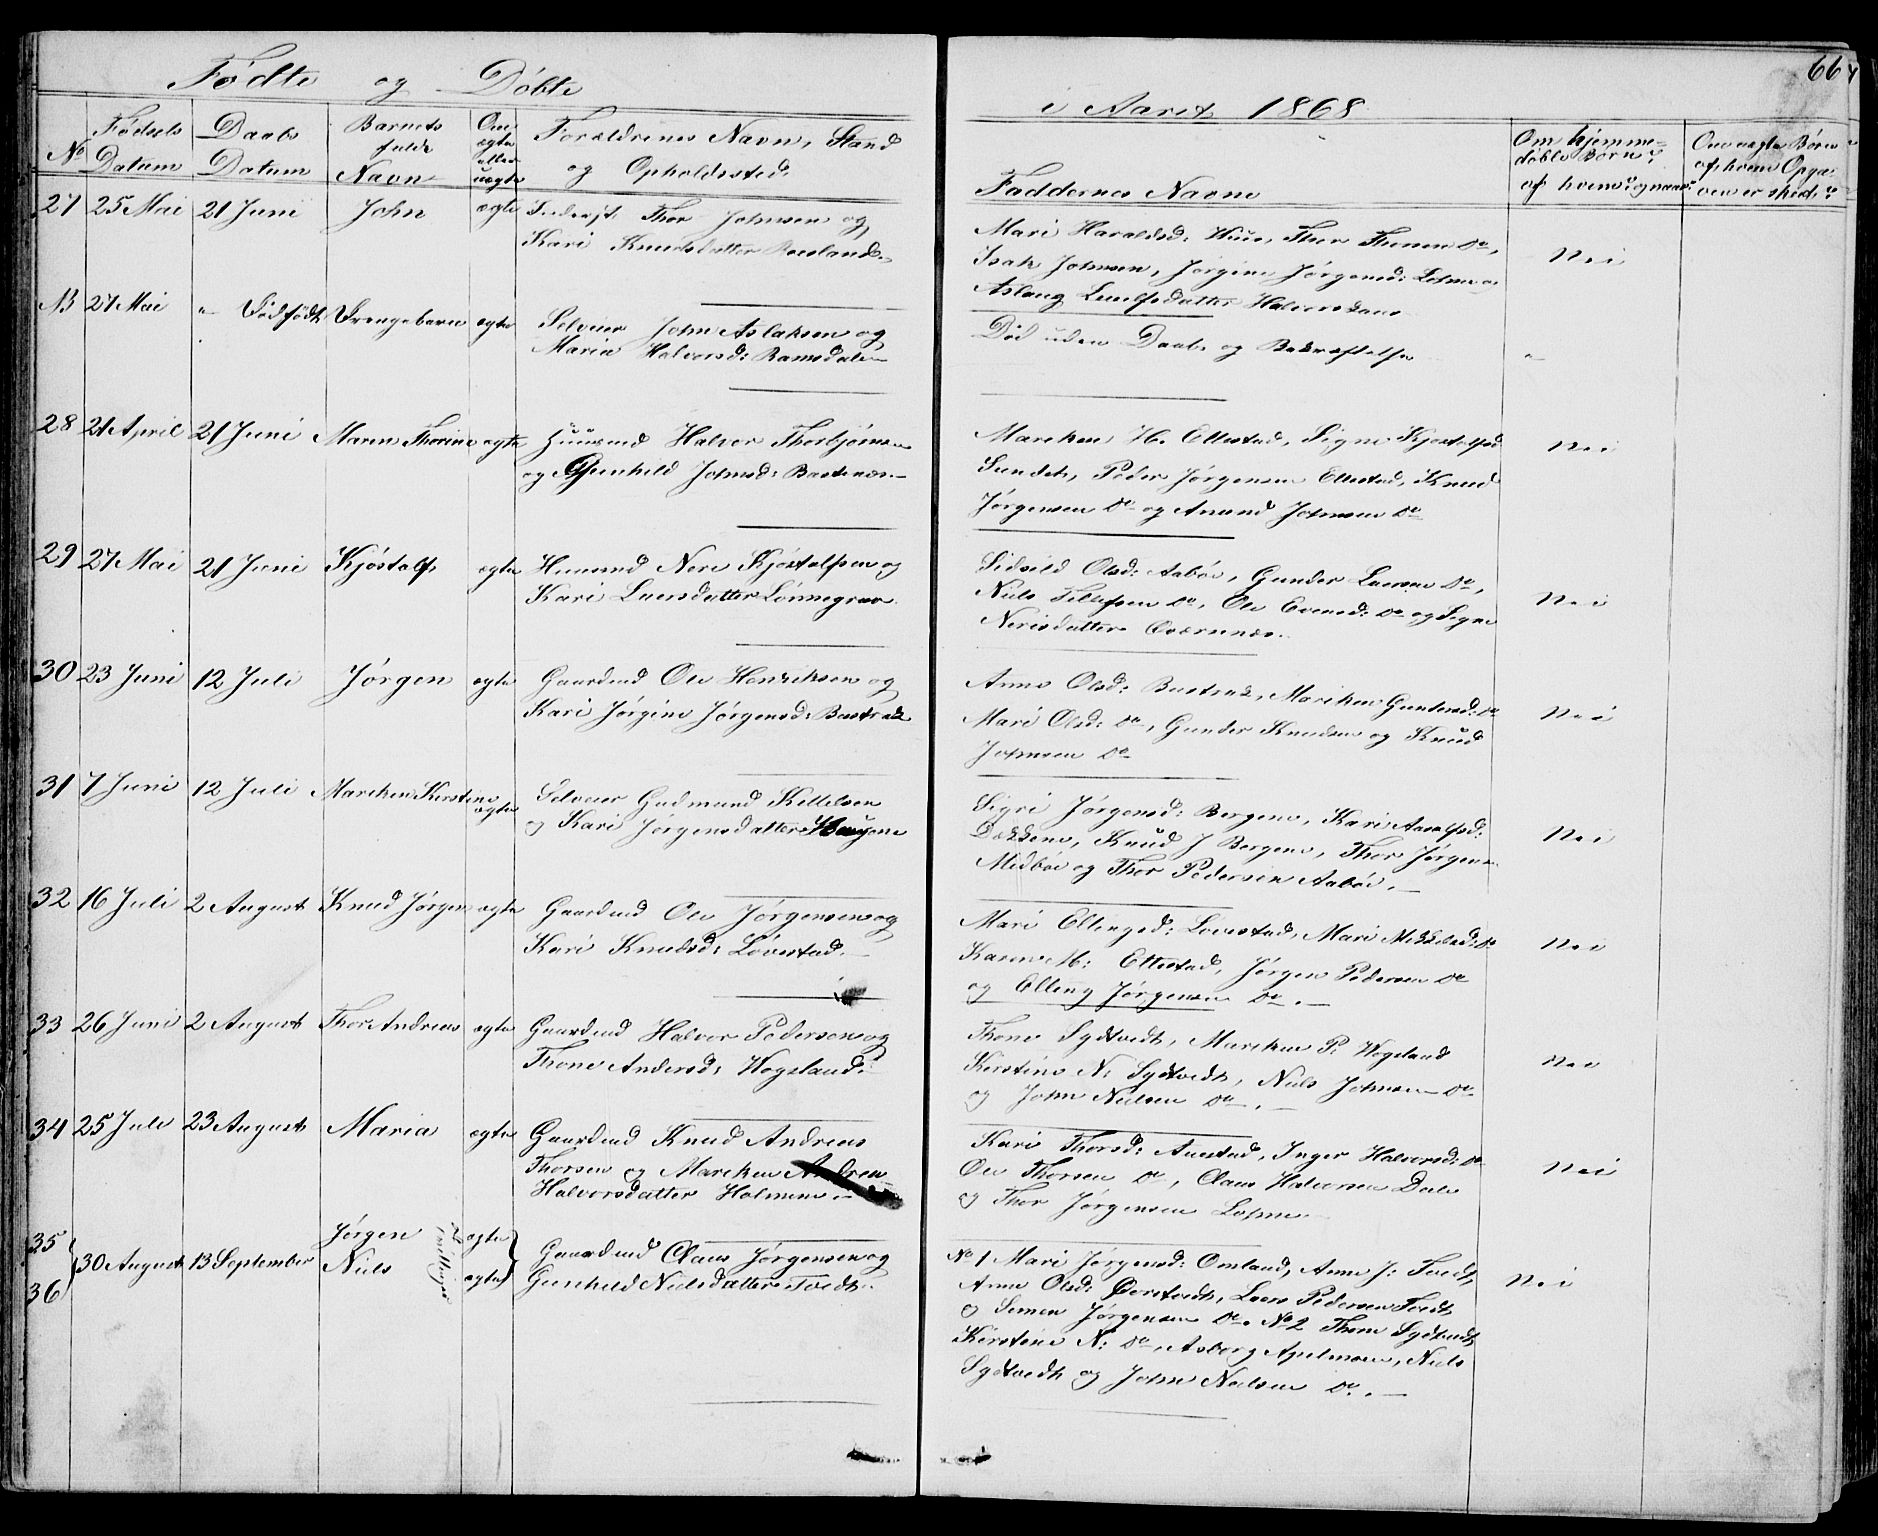 Fødte og Døbte
i Aaret 1868
66
No
Fødsels Datum
Daabs Datum
Barnets fulde Navn
Om ægte eller uægte
Forældrenes Navn, Stand og Opholdssted.
Faddernes Navne
Om hjemmedøbte Børn: af hvem? og naar?
Om uægte Børn af hvem Opgaven er skeet?
27 25 Mai 21 Juni John ægte
Thor Johnsen og
Kari Knudsdatter Roesland
Mari Haraldsd: Huus, Thor Do,
Isak Johnsen, Jørgine Jørgensd:
Aslaug Halvorskaas
Nei
NB 27 Mai " Dødfødt Drengebarn ægte
Selveier John Aslaksen og
Maria Halvorsd: Ramsdalen
Død uden Daab og Bekræftelse
"
28 21 April 21 Juni Maren Thorine ægte
Huusmd Halvor Thorbjørnsen
og Gunhild Johnsd: Bastnæs
Mareken H. Ettestad, Signe Kjøstolfsd
Sundet, Peder Jørgensen Ettestad, Knud
Jørgensen Do og Anund Johnsen Do
Nei
29 27 Mai 21 Juni Kjøstolf ægte
Huusmd Neri Kjøstolfsen og
Kari Larsdatter Lønnegrav
Sidsild Olsd: Aabøe, Gunder Larsen Do,
Niels Tellefsen Do, Ole Evensd: Do og Signe
Nerisdatter Qværnnæs
Nei
30 23 Juni 12 Juli Jørgen ægte
Gaardmd Ole Henriksen og
Kari Jørgine Jørgensd: Bastrak
Anne Olsd: Bastrak, Mareken Gundersd: Do
Mari Olsd: Do, Gunder Knudsen og Knud
Johnsen Do
Nei
31 7 Juni 12 Juli Mareken Kirstine ægte
Selveier Gudmund Kittelsen
og Kari Jørgensdatter Haugene
Sigri Jørgensd: Bergene, Kari
Dokkene, Knud J Bergene, Thor Jørgensen
Midbøe og Thor Pedersen Aabøe.
Nei
32 16 Juli 2 August Knud Jørgen ægte
Gaardmd Ole Jørgensen og
Kari Knudsd: Løvestad.
Mari Ellingsd: Løvestad, Mari Do
Karen M: Ettestad, Jørgen Pedersen Do
og Elling Jørgensen Do.
Nei
33 26 Juni 2 August Thor Andreas ægte
Gaardmd Halvor Pedersen og
Thone Andersd: Wogsland.
Thone Sydtvedt, Mareken P. Wogsland
Kirstine N: Sydtvedt, Niels Johnsen Do
og John Nielsen Do.
Nei
34 25 Juli 23 August Maria ægte
Gaardmd Knud Andreas
Thorsen og Mareken Andrea
Halvorsdatter Holmen
Kari Thorsd: Aasstad, Inger Halvorsd: Do
Ole Thorsen Do, Claus Halvorsen Dale
og Thor Jørgensen
Nei
35
36
30 August 13 September
Jørgen ægte
Niels ægte
Tvillinger
Gaardmd Claus Jørgensen og
Gunhild Nielsdatter Tvedt.
No 1 Mari Jørgensd: Omland, Anne J: Tvedt,
Anne Olsd: Ørstvedt, Lars Pedersen Tvedt
og Simon Jørgensen Do. No 2 Thone Sydtvedt
Kirstine N: Do, Asborg Niels
Sydtvedt og John Nielsen Do.
Nei